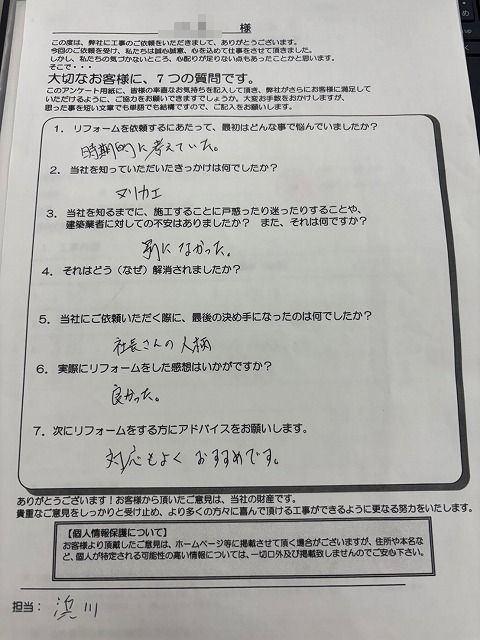 様
この度は、弊社に工事のご依頼をいただきまして、ありがとうございます。
今回のご依頼を受け、私たちは誠心誠意、心を込めて仕事をさせて頂きました。
しかし、私たちの気づかないところ、心配りが足りない点もあったことかと思います。
そこで・・・
大切なお客様に、7つの質問です。
このアンケート用紙に、皆様の率直なお気持ちを記入して頂き、弊社がさらにお客様に満足して
いただけるように、ご協力をお願いできますでしょうか。大変お手数をおかけしますが、
思った事を短い文章でも単語でも結構ですので、ご記入をお願いします。
1. リフォームを依頼するにあたって、最初はどんな事で悩んでいましたか?
時期的に考えていた。
2. 当社を知っていただいたきっかけは何でしたか?
ヌリカエ
3. 当社を知るまでに、施工することに戸惑ったり迷ったりすることや、
建築業者に対しての不安はありましたか? また、それは何ですか?
別になかった。
4. それはどう(なぜ)解消されましたか?
5. 当社にご依頼いただく際に、最後の決め手になったのは何でしたか?
社長さんの人柄
6. 実際にリフォームをした感想はいかがですか?
良かった。
7. 次にリフォームをする方にアドバイスをお願いします。
対応もよくおすすめです。
ありがとうございます!お客様から頂いたご意見は、当社の財産です。
貴重なご意見をしっかりと受け止め、より多くの方々に喜んで頂ける工事ができるように更なる努力をいたします。
【個人情報保護について】
お客様より頂戴したご意見は、ホームページ等に掲載させて頂く場合がございますが、住所や本名な
ど、個人が特定される可能性の高い情報については、一切口外及び掲載致しませんのでご安心下さい。
担当: 浜川